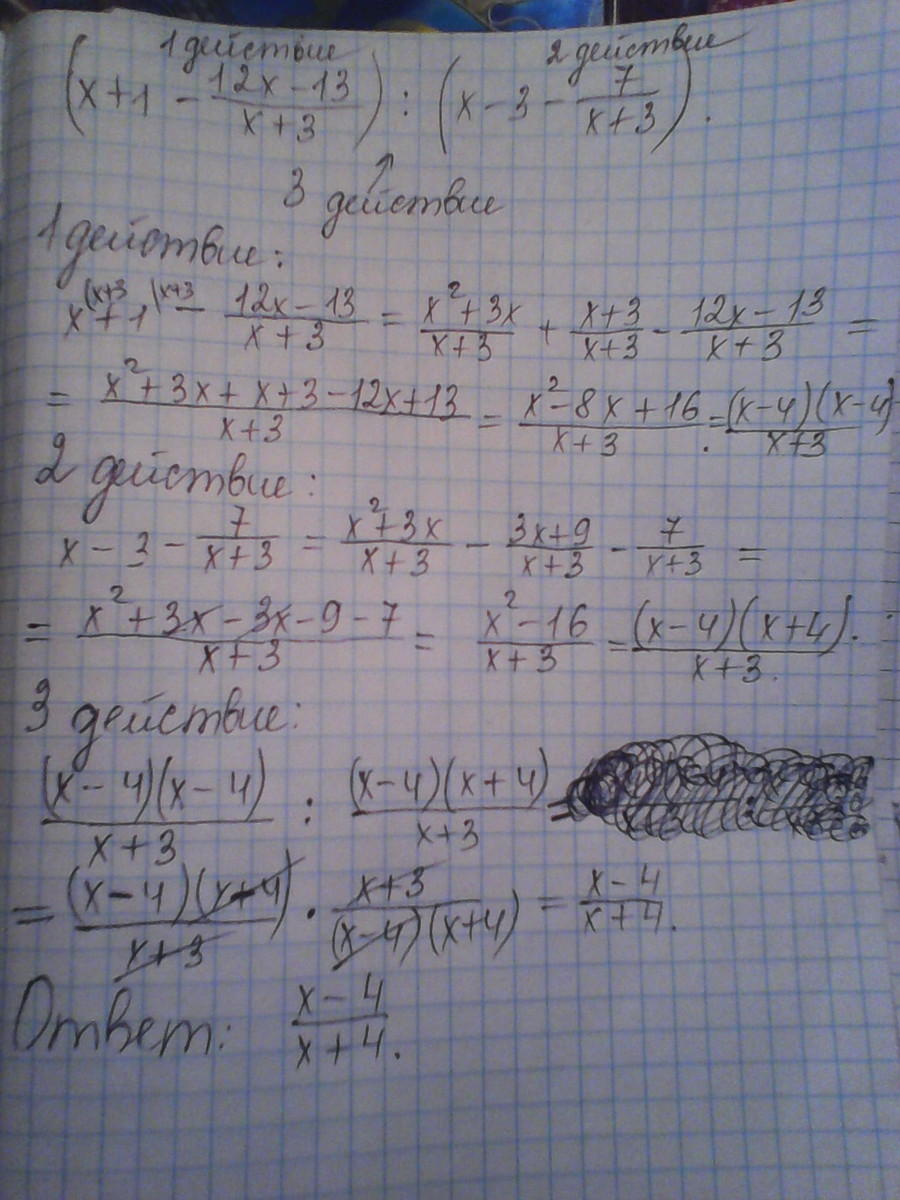 1 действие 2 действие
(x+1 - \frac{12x-13}{x+3}) : (x-3-\frac{7}{x+3}).
3 действие
1 действие:
x^{(x+3} + 1^{\x+3} - \frac{12x-13}{x+3} = \frac{x^2+3x}{x+3} + \frac{x+3}{x+3} - \frac{12x-13}{x+3} =
= \frac{x^2+3x+x+3-12x+13}{x+3} = \frac{x^2-8x+16}{x+3}. = \frac{(x-4)(x-4)}{x+3}
2 действие:
x-3-\frac{7}{x+3} = \frac{x^2+3x}{x+3} - \frac{3x+9}{x+3} - \frac{7}{x+3} =
= \frac{x^2+3x-3x-9-7}{x+3} = \frac{x^2-16}{x+3} = \frac{(x-4)(x+4)}{x+3}.
3 действие:
\frac{(x-4)(x-4)}{x+3} : \frac{(x-4)(x+4)}{x+3} =
= \frac{(x-4)(x-4)}{x+3} \cdot \frac{x+3}{(x-4)(x+4)} = \frac{x-4}{x+4}.
Ответ: \frac{x-4}{x+4}.